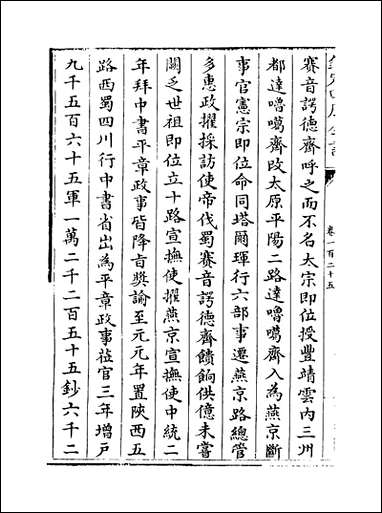 欽定四庫全書
卷一百二十五
賽音諤德齊呼之而不名太宗即位授豐靖雲内三州
都達嚕噶齊改太原平陽二路達嚕噶齊入為燕京斷
事官憲宗即位命同塔爾琿行六部事遷燕京路總管
多惠政擢採訪使帝伐蜀賽音諤德齊饋餉供億未嘗
闕乏世祖即位立十路宣撫使擢燕京宣撫使中統二
年拜中書平章政事皆降㫖奬諭至元元年置陜西五
路西蜀四川行中書省出為平章政事莅官三年増户
九千五百六十五軍一萬二千二百五十五鈔六千二